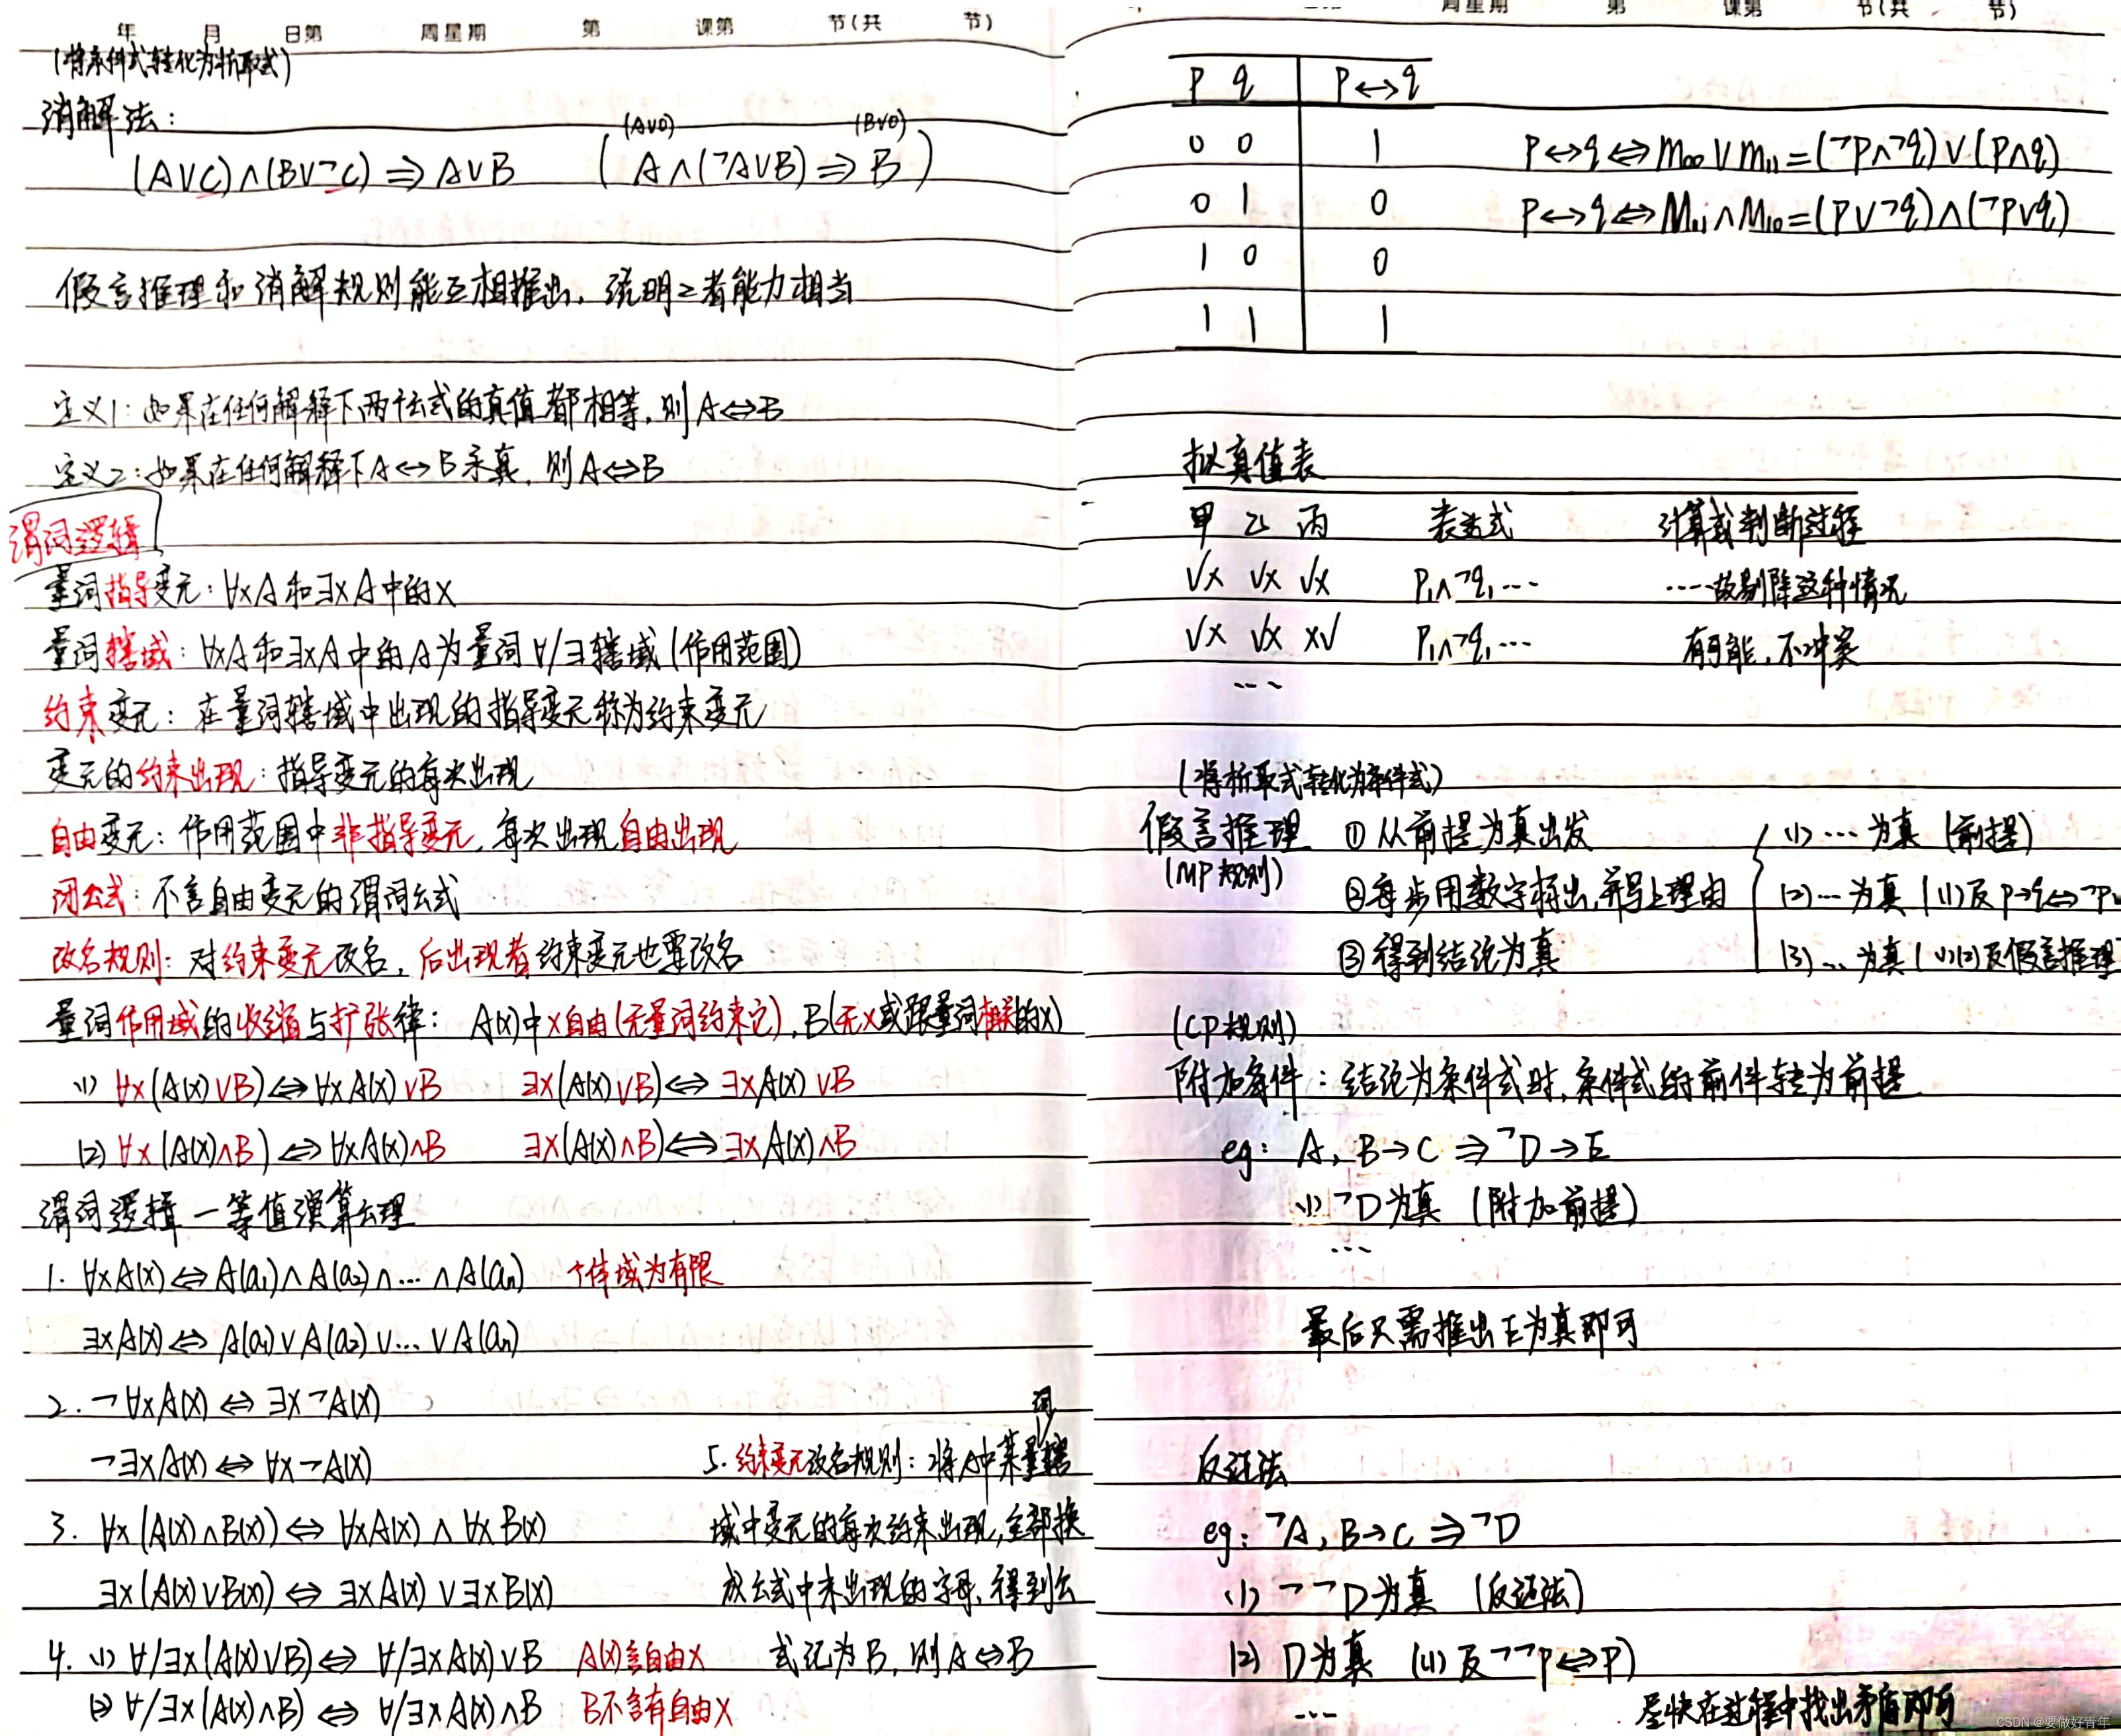 年 月 日第 周星期 第 课第 节(共 节)
(将条件式转化为析取式)
消解法:
(A∨0) (B∨0)
(A∨C)∧(B∨¬C)⇒A∨B (A∧(¬A∨B)⇒B)
假言推理和消解规则能互相推出,说明二者能力相当
定义1:如果在任何解释下两个公式的真值都相等,则A⇔B
定义2:如果在任何解释下A↔B永真,则A⇔B
谓词逻辑
量词指导变元:∀xA和∃xA中的x
量词辖域:∀xA和∃xA中的A为量词∀/∃辖域(作用范围)
约束变元:在量词辖域中出现的指导变元称为约束变元
变元的约束出现:指导变元的每次出现
自由变元:作用范围中非指导变元,每次出现自由出现
闭公式:不含自由变元的谓词公式
改名规则:对约束变元改名,后出现者约束变元也要改名
量词作用域的收缩与扩张律:A(x)中x自由(无量词约束它),B(无x或跟量词相关的x)
(1) ∀x(A(x)∨B)⇔∀xA(x)∨B ∃x(A(x)∨B)⇔∃xA(x)∨B
(2) ∀x(A(x)∧B)⇔∀xA(x)∧B ∃x(A(x)∧B)⇔∃xA(x)∧B
谓词逻辑一等值演算公理
1. ∀xA(x)⇔A(a₁)∧A(a₂)∧…∧A(aₙ) 个体域为有限
∃xA(x)⇔A(a₁)∨A(a₂)∨…∨A(aₙ)
2. ¬∀xA(x)⇔∃x¬A(x)
¬∃xA(x)⇔∀x¬A(x)
3. ∀x(A(x)∧B(x))⇔∀xA(x)∧∀xB(x)
∃x(A(x)∨B(x))⇔∃xA(x)∨∃xB(x)
4. (1) ∀/∃x(A(x)∨B)⇔∀/∃xA(x)∨B A(x)含自由x
(2) ∀/∃x(A(x)∧B)⇔∀/∃xA(x)∧B B不含有自由x
词
5. 约束变元改名规则:将A中某量辖
域中变元的每次约束出现,全部换
成公式中未出现的字母,得到公
式记为B,则A⇔B
周星期 第 课第 节(共 节)
p q p↔q
0 0 1 p↔q⇔m₀₀∨m₁₁=(¬p∧¬q)∨(p∧q)
0 1 0 p↔q⇔M₀₁∧M₁₀=(p∨¬q)∧(¬p∨q)
1 0 0
1 1 1
拟真值表
甲 乙 丙 表达式 计算或判断过程
√× √× √× P₁∧¬q₁… ……故剔除这种情况
√× √× ×√ P₁∧¬q₁… 有可能,不冲突
…
(将析取式转化为条件式)
假言推理 ①从前提为真出发 (1)…为真(前提)
(MP规则) ②每步用数字标出,并写上理由 (2)…为真((1)及p→q⇔¬p
③得到结论为真 (3)…为真((1)(2)及假言推理
(CP规则)
附加条件:结论为条件式时,条件式的前件转为前提
eg: A, B→C⇒¬D→E
(1)¬D为真(附加前提)
…
最后只需推出E为真即可
反证法
eg: ¬A, B→C⇒¬D
(1) ¬¬D为真 (反证法)
(2) D为真 ((1)及¬¬p⇔p)
…
尽快在过程中找出矛盾即可
CSDN @要做好青年